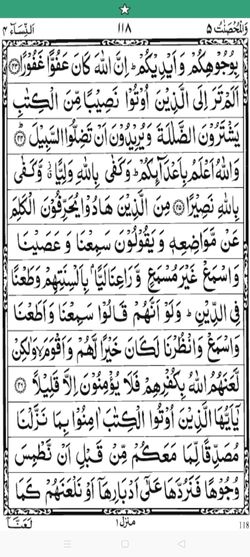 اَلنِّسَآء ٤ ١١٨ وَالْمُحْصَنٰتُ ٥
بِوُجُوْهِكُمْ وَاَيْدِيْكُمْ ؕ اِنَّ اللّٰهَ كَانَ عَفُوًّا غَفُوْرًا ﴿٤٣﴾
اَلَمْ تَرَ اِلَى الَّذِيْنَ اُوْتُوْا نَصِيْبًا مِّنَ الْكِتٰبِ
يَشْتَرُوْنَ الضَّلٰلَةَ وَيُرِيْدُوْنَ اَنْ تَضِلُّوا السَّبِيْلَ ﴿٤٤﴾
وَاللّٰهُ اَعْلَمُ بِاَعْدَآئِكُمْ ؕ وَكَفٰى بِاللّٰهِ وَلِيًّا ۫ۙ وَّكَفٰى
بِاللّٰهِ نَصِيْرًا ﴿٤٥﴾ مِنَ الَّذِيْنَ هَادُوْا يُحَرِّفُوْنَ الْكَلِمَ
عَنْ مَّوَاضِعِهٖ وَيَقُوْلُوْنَ سَمِعْنَا وَعَصَيْنَا
وَاسْمَعْ غَيْرَ مُسْمَعٍ وَّرَاعِنَا لَيًّۢا بِاَلْسِنَتِهِمْ وَطَعْنًا
فِى الدِّيْنِ ؕ وَلَوْ اَنَّهُمْ قَالُوْا سَمِعْنَا وَاَطَعْنَا
وَاسْمَعْ وَانْظُرْنَا لَكَانَ خَيْرًا لَّهُمْ وَاَقْوَمَ ۙ وَلٰكِنْ
لَّعَنَهُمُ اللّٰهُ بِكُفْرِهِمْ فَلَا يُؤْمِنُوْنَ اِلَّا قَلِيْلًا ﴿٤٦﴾
يٰۤاَيُّهَا الَّذِيْنَ اُوْتُوا الْكِتٰبَ اٰمِنُوْا بِمَا نَزَّلْنَا
مُصَدِّقًا لِّمَا مَعَكُمْ مِّنْ قَبْلِ اَنْ نَّطْمِسَ
وُجُوْهًا فَنَرُدَّهَا عَلٰٓى اَدْبَارِهَاۤ اَوْ نَلْعَنَهُمْ كَمَا
لَعَنَّآ منزل ١ 118